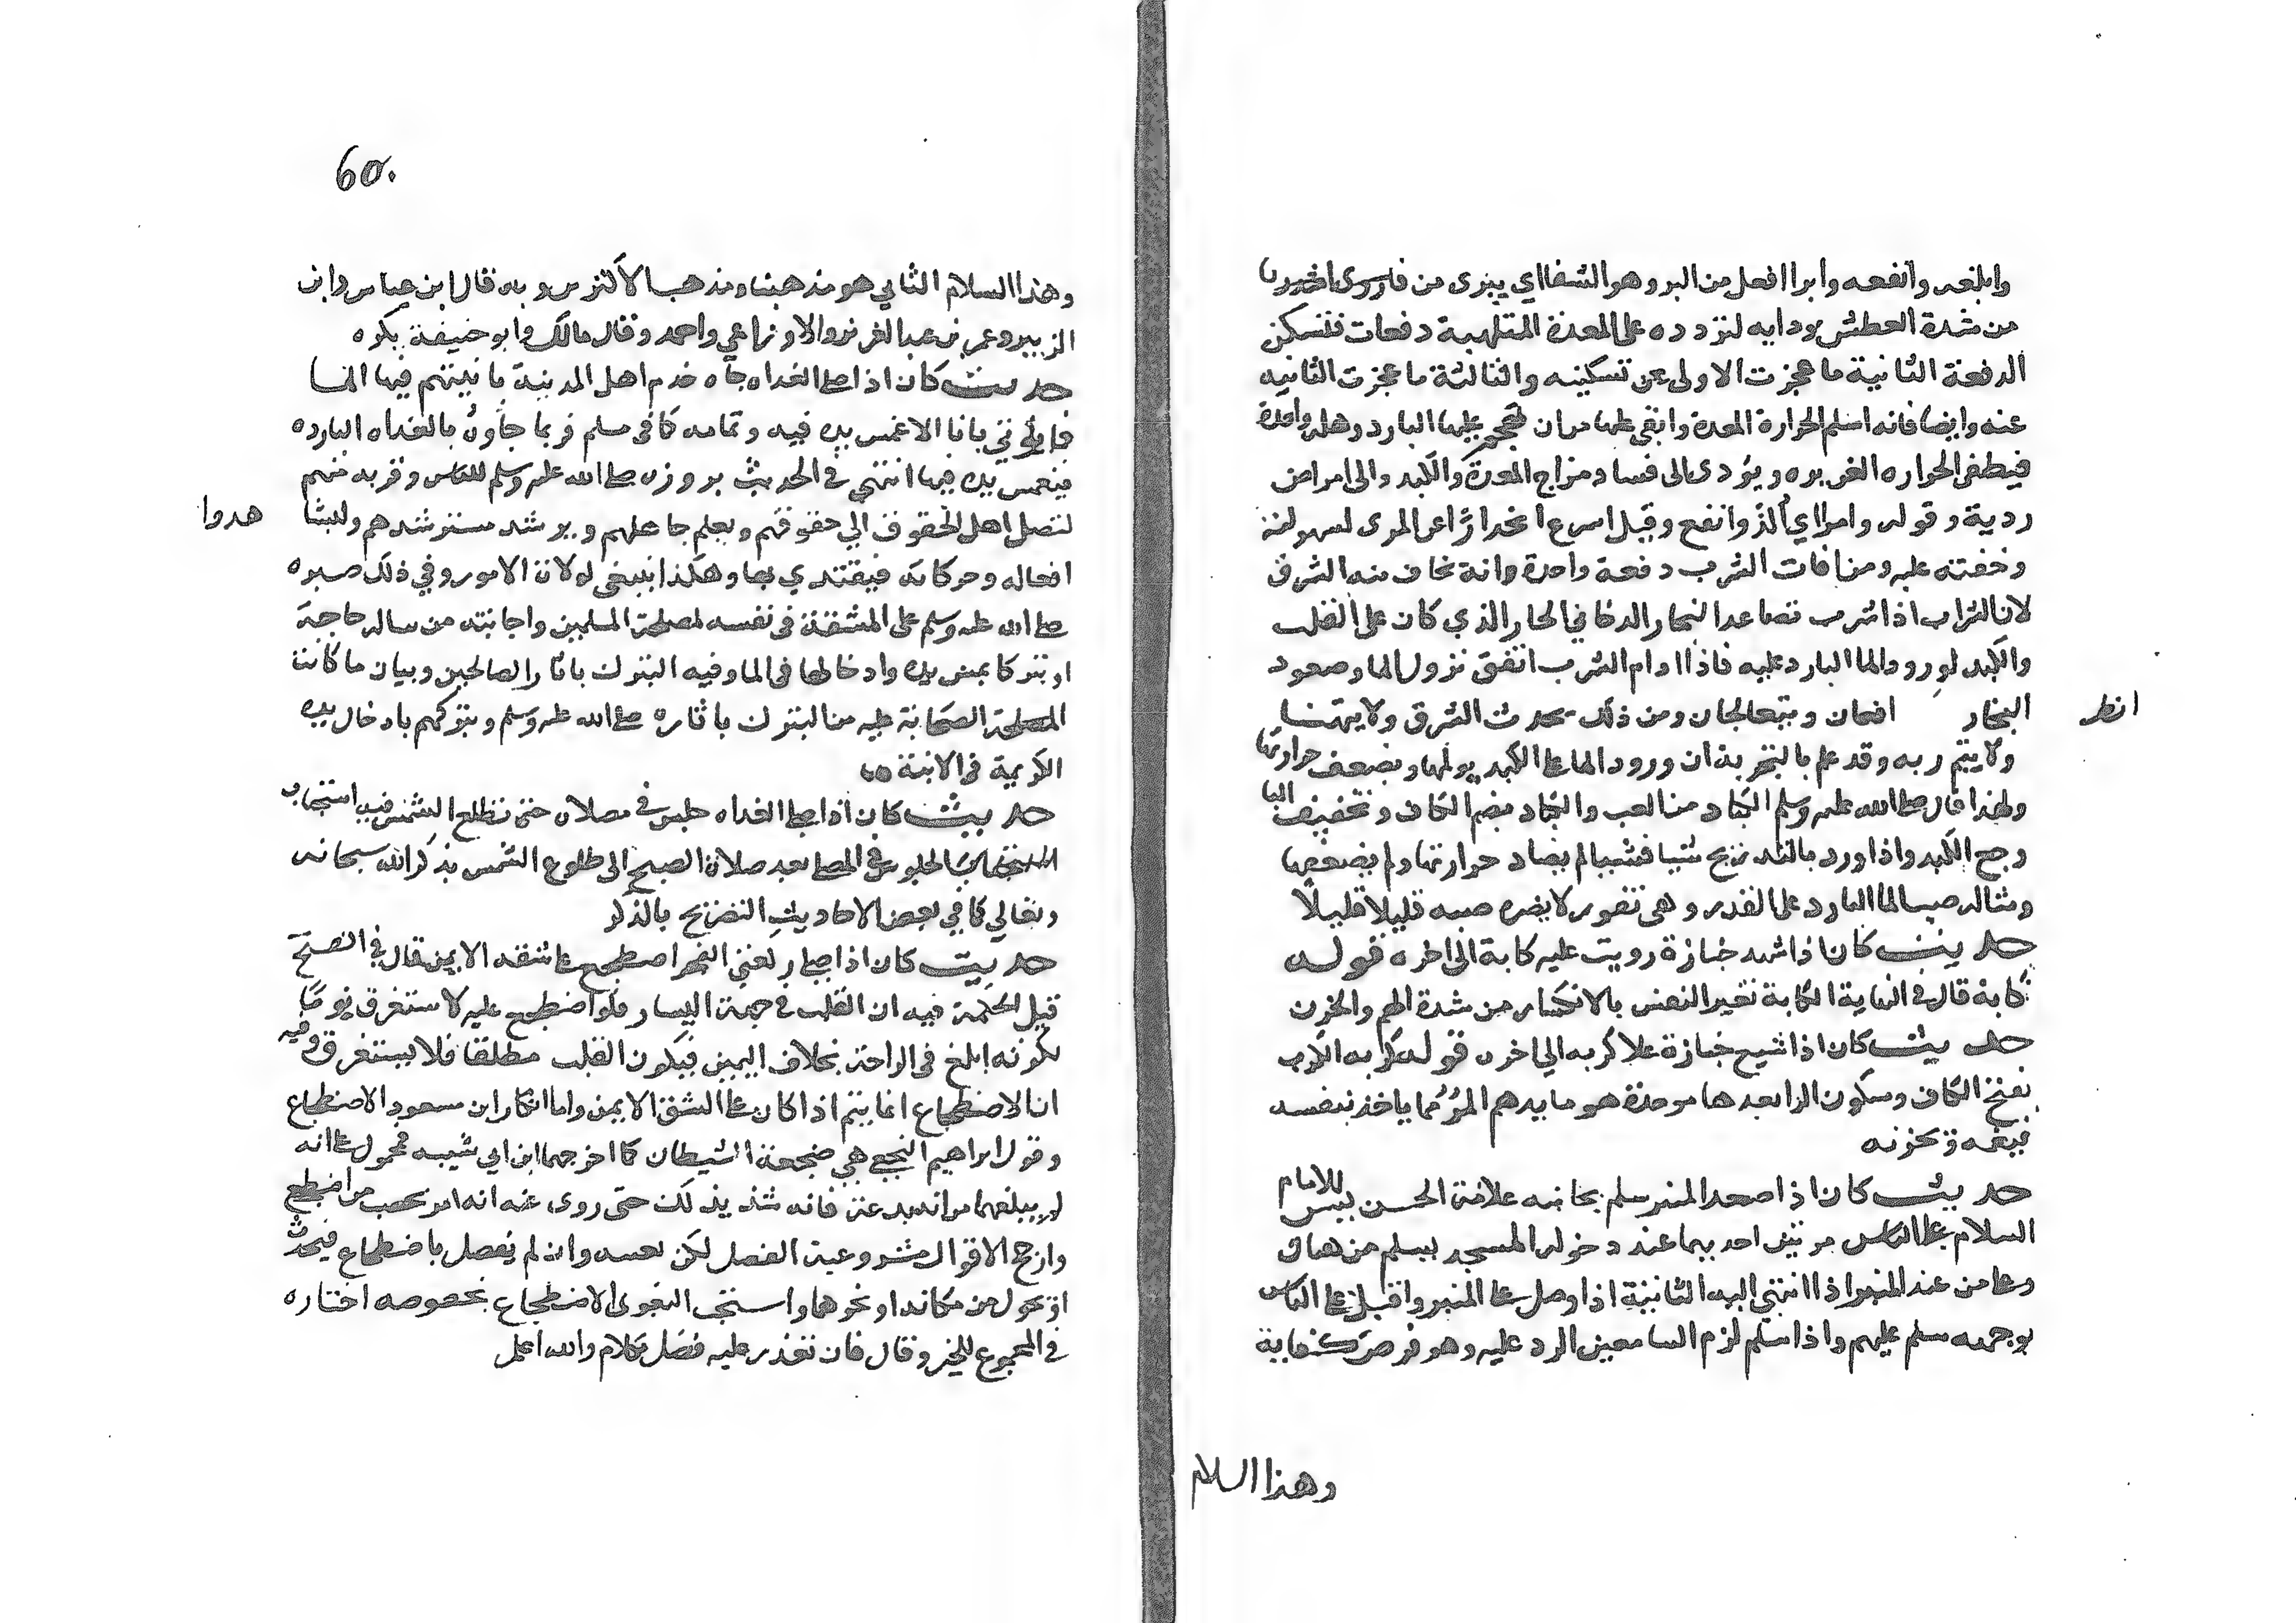 وابلغه وانفعه وابرا افعل من البر وهو الشفا اي يبرى من
من شدة العطش ودايه لتردده على المعدة الملتهبة دفعات فتسكن
الدفعة الثانية ما عجزت الاولى عن تسكينه والثالثة ما عجزت الثانيه
عنه وايضا فانه اسلم لحرارة المعدة وابقى عليها من ان يهجم عليها البارد وهلة واحدة
فيطفى الحراره الغريزيه ويؤدى الى فساد مزاج المعدة والكبد والى امراض
ردية وقوله وامرا اي ألذ وانفع وقيل اسرع انحدارًا عن المرى لسهولته
وخفته عليه ومن افات الشرب دفعة واحدة وانه يخاف منه الشرق
لان الشراب اذا شرب تصاعد البخار الدخاني الحار الذي كان على القلب
والكبد لورود الما البارد عليه فاذا ادام الشرب اتفق نزول الما وصعود
البخار فيتدافعان ويتعالجان ومن ذلك يحدث الشرق ولا يتهنا
انظر
ولا يتم ريه وقد علم بالتجربة ان ورود الما على الكبد يولمها ويضعف حرارتها
ولهذا قال صلى الله عليه وسلم الكباد من العب والكباد بضم الكاف وتخفيف البا
وجع الكبد واذا ورد بالتدريج شيا فشيا لم يضاد حرارتها ولم يضعفها
ومثاله صب الما البارد على القدر وهى تفور لا يضره صبه قليلا قليلًا
حديث كان اذا شهد جنازة رويت عليه كابة الى اخره قوله
كابة قال في النهاية الكابة تغير النفس بالانكسار من شدة الهم والحزن
حديث كان اذا شيع جنازة علا كربه الي اخره قوله كربه الكرب
بفتح الكاف وسكون الرا بعدها موحدة هو ما يدهم المرؤ مما ياخذ بنفسه
فيغمه ويحزنه
حديث كان اذا صعد المنبر سلم بجانبه علامة الحسن يسن للامام
السلام على الناس مرتين احديهما عند دخوله المسجد يسلم من هناك
وعلى من عند المنبر اذا انتهي اليه الثانية اذا وصل على المنبر واقبل على الناس
بوجهه سلم عليهم واذا سلم لزم السامعين الرد عليه وهو فرض كفاية
وهذا السلام
60.
وهذا السلام الثاني هو مذهبنا ومذهب الاكثرين وبه قال ابن عباس وابن
الزبير وعمر بن عبد العزيز والاوزاعي واحمد وقال مالك وابو حنيفة يكره
حديث كان اذا صلى الغداه جآه خدم اهل المدينة بانيتهم فيها الما
فما يؤتى بانا الا غمس يده فيه وتمامه كما في مسلم فربما جآوه بالغداه البارده
فيغمس يده فيها انتهي في الحديث بروزه صلى الله عليه وسلم للناس وقربه منهم
لتصل اهل الحقوق الي حقوقهم ويعلم جاهلهم ويرشد مسترشدهم وليشا
هدوا
افعاله وحركاته فيقتدي بها وهكذا ينبغي لولاة الامور وفي ذلك صبره
صلى الله عليه وسلم على المشقة في نفسه لمصلحة المسلمين واجابته من ساله حاجة
او تبركا بمس يده وادخالها في الما وفيه التبرك باثار الصالحين وبيان ما كانت
الصحابة عليه من التبرك باثاره صلى الله عليه وسلم وتبركهم بادخال يده
الكريمة في الانية
حديث كان اذا صلى الغداه جلس في مصلاه حتى تطلع الشمس فيه استحباب
الجلوس في المصلى بعد صلاة الصبح الى طلوع الشمس بذكر الله سبحانه
وتعالي كما في بعض الاحاديث التصريح بالذكر
حديث كان اذا صلى ركعتي الفجر اضطجع على شقه الايمن قال في الفتح
قيل الحكمة فيه ان القلب في جهة اليسار فلو اضطجع عليه لاستغرق نومًا
لكونه ابلغ في الراحة بخلاف اليمين فيكون القلب مطلقا فلا يستغرق وفيه
ان الاضطجاع انما يتم اذا كان على الشق الايمن واما انكار ابن مسعود الاضطجاع
وقول ابراهيم النخعي هي ضجعة الشيطان كما اخرجهما ابن ابي شيبه فمحمول على انه
لم يبلغهما من انه بدعة فانه شذ بذلك حتى روى عنه انه امر بحصب من اضطجع
وارجح الاقوال مشروعية الفصل لكن لعبيد وان لم يفصل باضطجاع فيحدث
او تحول من مكانه او نحوها واستحب البغوى الاضطجاع بخصوصه اختاره
في المجموع للخبر وقال فان تعذر عليه فصل بكلام والله اعلم